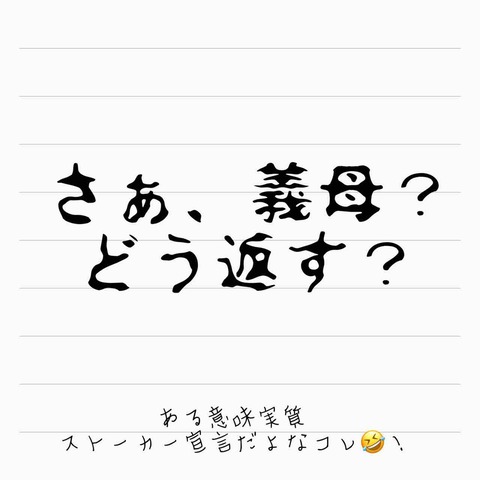 さぁ、義母？
どう返す？
ある意味実質
ストーカー宣言だよなコレ🤣！